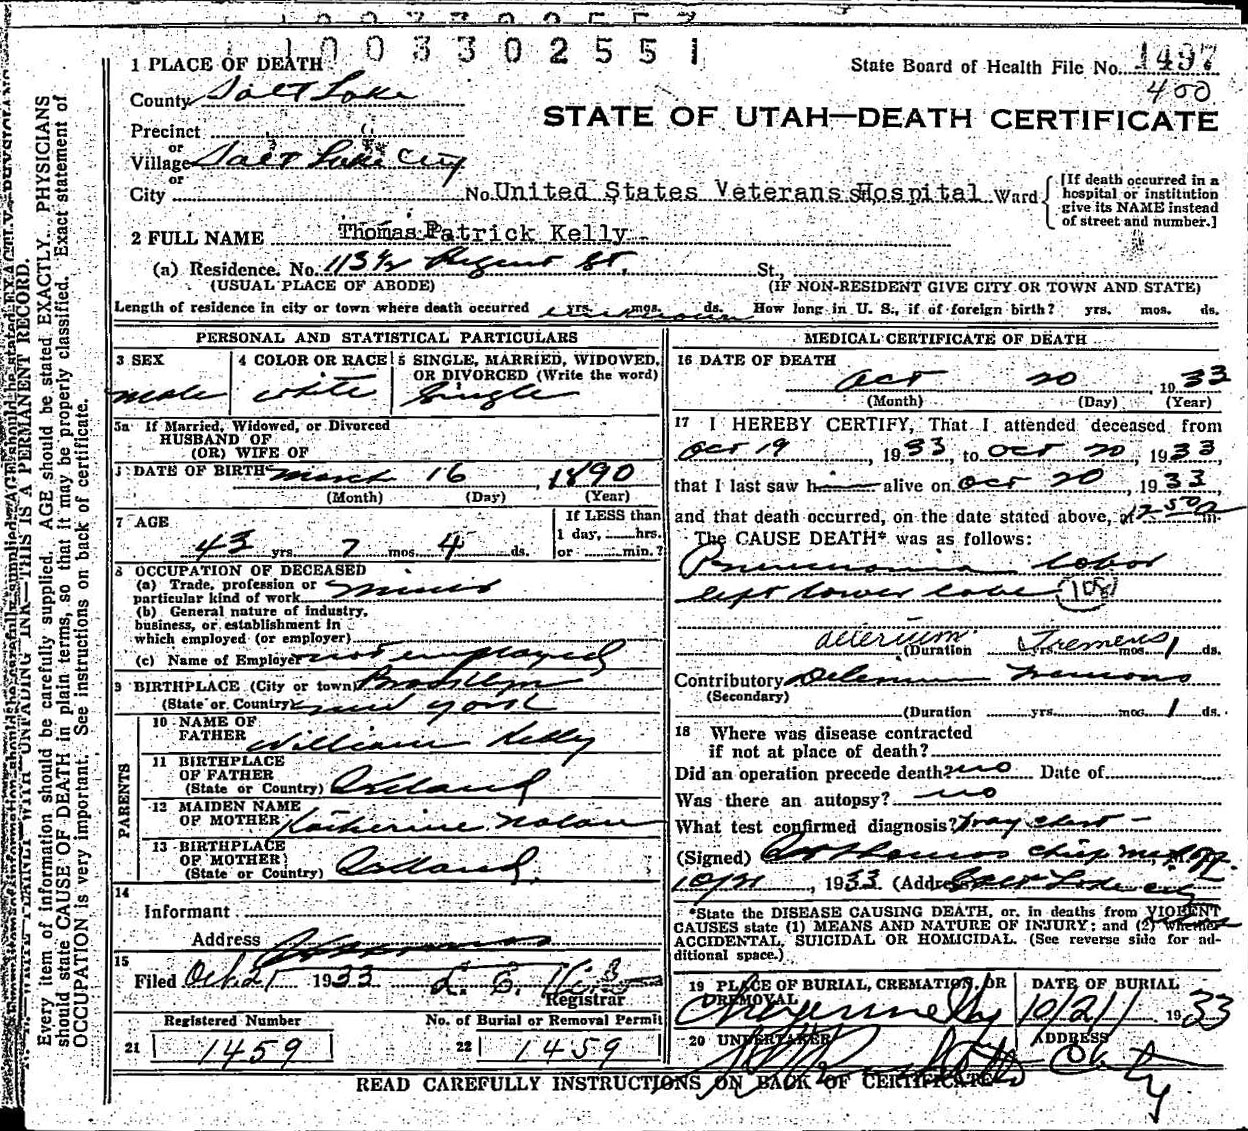 1003302551
1 PLACE OF DEATH
State Board of Health File No. 1497
400
County Salt Lake
STATE OF UTAH—DEATH CERTIFICATE
Precinct
or
Village Salt Lake City
or
City No. United States Veterans Hospital Ward
[If death occurred in a
hospital or institution
give its NAME instead
of street and number.]
2 FULL NAME Thomas Patrick Kelly
(a) Residence. No. 113½ Regent St. St.,
(USUAL PLACE OF ABODE) (IF NON-RESIDENT GIVE CITY OR TOWN AND STATE)
Length of residence in city or town where death occurred unknown yrs. mos. ds. How long in U. S., if of foreign birth? yrs. mos. ds.
PERSONAL AND STATISTICAL PARTICULARS
3 SEX
male
4 COLOR OR RACE
white
5 SINGLE, MARRIED, WIDOWED,
OR DIVORCED (Write the word)
Single
5a If Married, Widowed, or Divorced
HUSBAND OF
(OR) WIFE OF
DATE OF BIRTH March 16, 1890
(Month) (Day) (Year)
7 AGE
43 yrs. 7 mos. 4 ds.
If LESS than
1 day, hrs.
or min.?
8 OCCUPATION OF DECEASED
(a) Trade, profession or
particular kind of work miner
(b) General nature of industry,
business, or establishment in
which employed (or employer)
(c) Name of Employer not employed
9 BIRTHPLACE (City or town) Brooklyn
(State or Country) New York
PARENTS
10 NAME OF
FATHER William Kelly
11 BIRTHPLACE
OF FATHER
(State or Country) Ireland
12 MAIDEN NAME
OF MOTHER Katherine Nolan
13 BIRTHPLACE
OF MOTHER
(State or Country) Ireland.
14
Informant
Address
15
Filed Oct. 21 1933
Registrar
Registered Number No. of Burial or Removal Permit
21 1459 22 1459
MEDICAL CERTIFICATE OF DEATH
16 DATE OF DEATH
Oct 20 1933
(Month) (Day) (Year)
17 I HEREBY CERTIFY, That I attended deceased from
Oct 19, 1933, to Oct 20, 1933,
that I last saw him alive on Oct 20, 1933,
and that death occurred, on the date stated above, at 12 50 a m.
The CAUSE DEATH* was as follows:
Pneumonia lobar
left lower lobe 108
delerium Tremens
(Duration yrs. mos. 1 ds.
Contributory Delerium Tremens
(Secondary)
(Duration yrs. mos. 1 ds.
18 Where was disease contracted
if not at place of death?
Did an operation precede death? no Date of
Was there an autopsy? no
What test confirmed diagnosis? Xray chest -
(Signed) Thomas chief med off.
10/21, 1933 (Address Salt Lake City
*State the DISEASE CAUSING DEATH, or, in deaths from VIOLENT
CAUSES state (1) MEANS AND NATURE OF INJURY; and (2) whether
ACCIDENTAL, SUICIDAL OR HOMICIDAL. (See reverse side for ad-
ditional space.)
19 PLACE OF BURIAL, CREMATION, OR
REMOVAL
Cheyenne Wy
DATE OF BURIAL
10/21 1933
20 UNDERTAKER
ADDRESS
City
READ CAREFULLY INSTRUCTIONS ON BACK OF CERTIFICATE
UNFADING INK—THIS IS A PERMANENT RECORD.
Every item of information should be carefully supplied. AGE should be stated EXACTLY. PHYSICIANS
should state CAUSE OF DEATH in plain terms, so that it may be properly classified. Exact statement of
OCCUPATION is very important. See instructions on back of certificate.